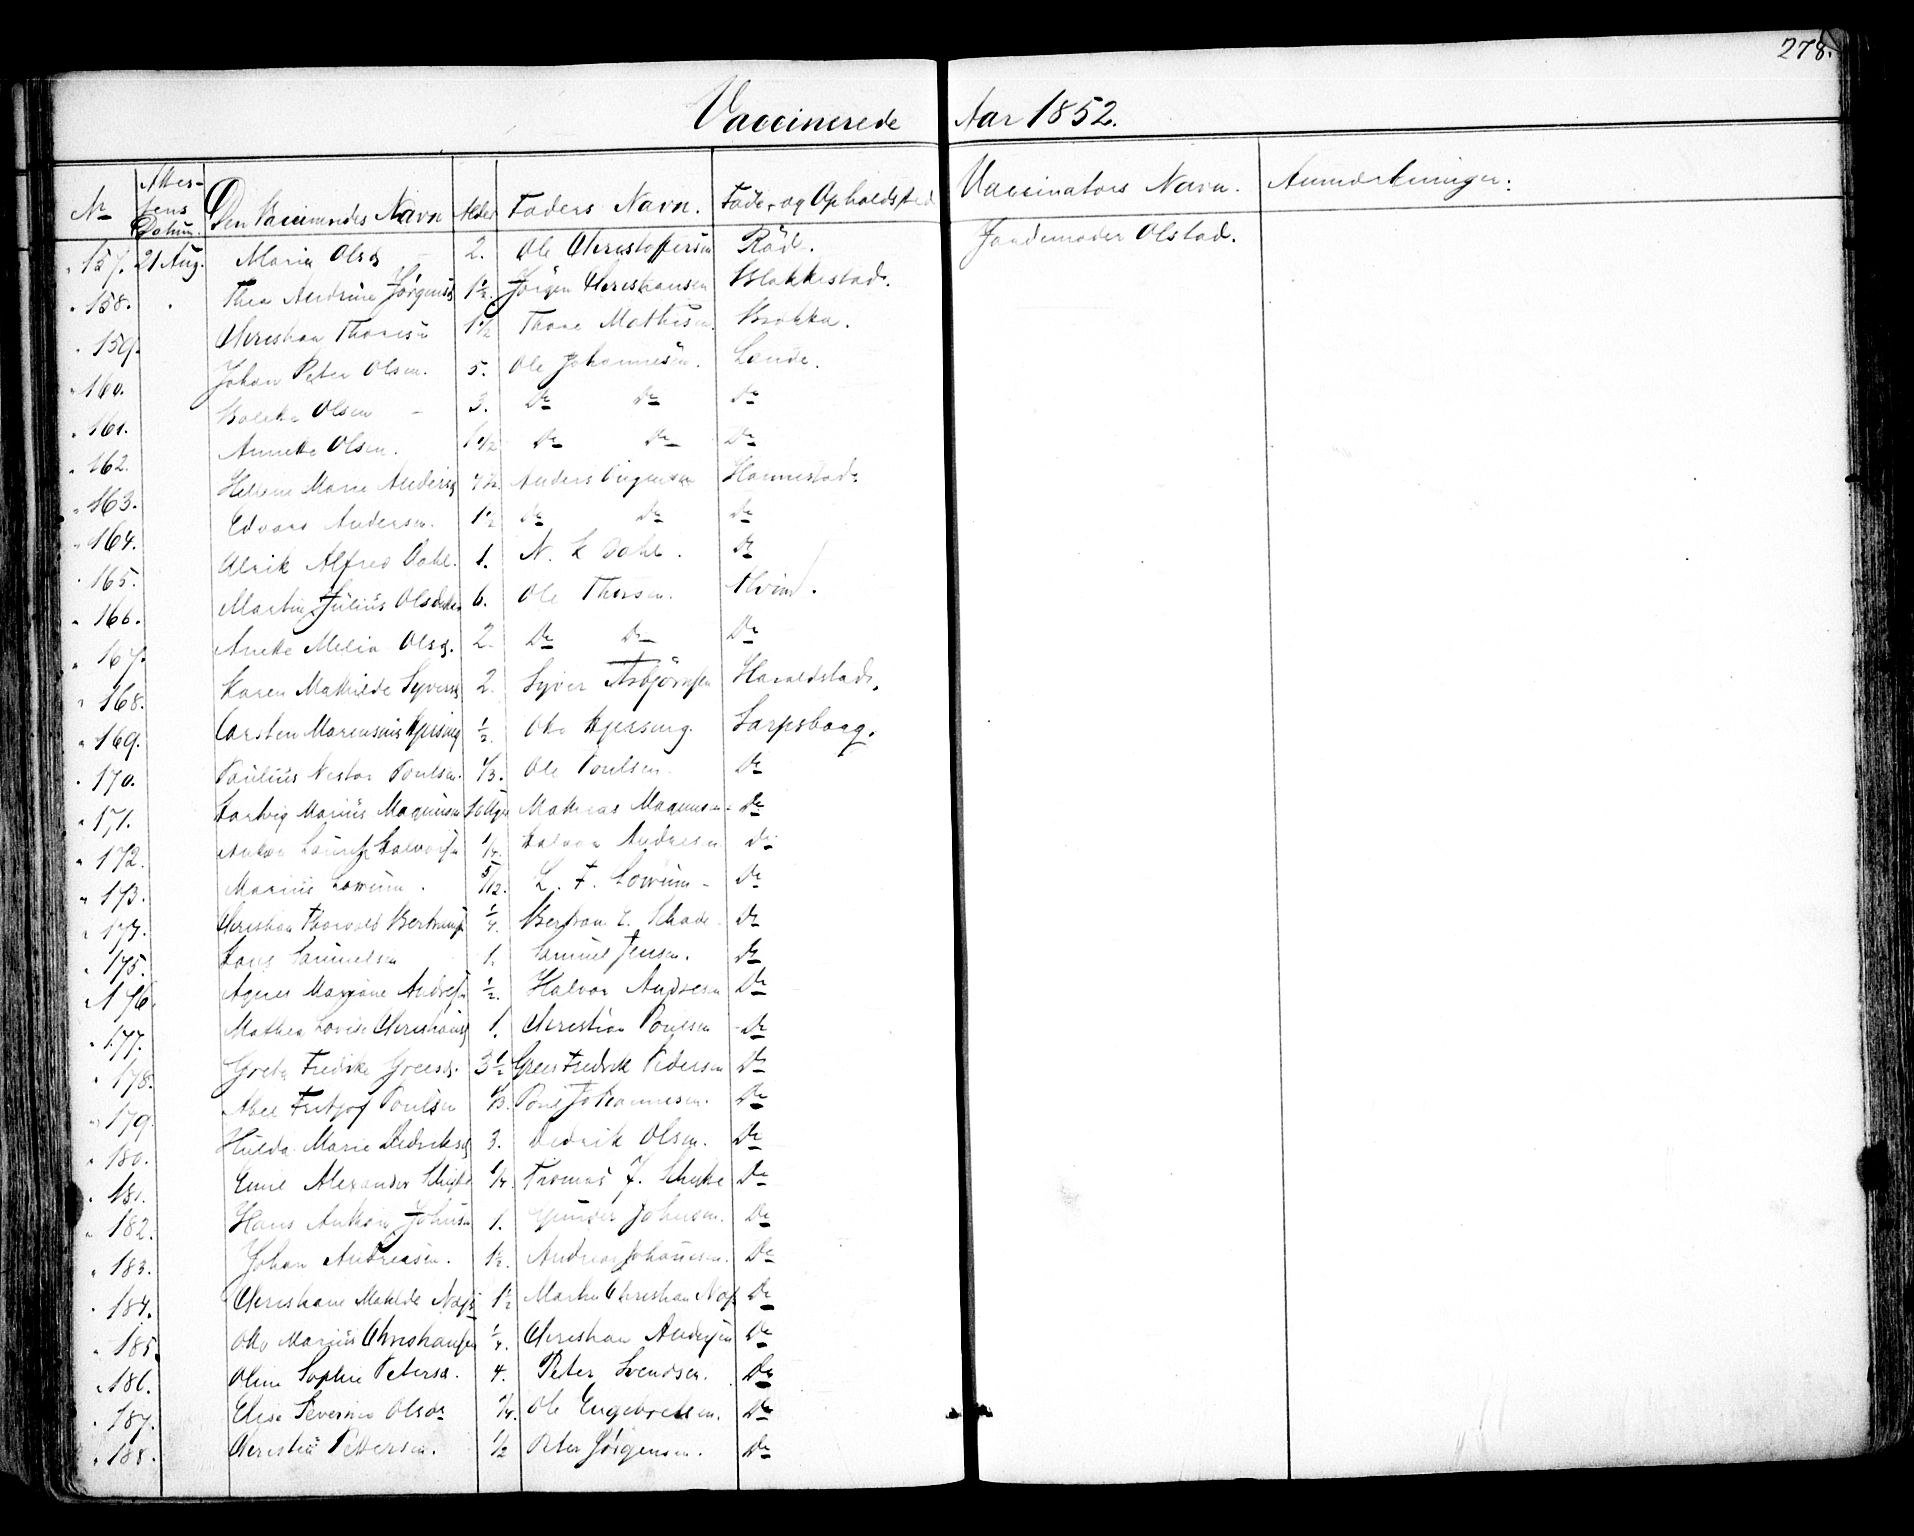 278.
Vaccinerede Aar 1852.
No Attestens Datum. Den Vaccineredes Navn Alder Faders Navn. Føde- og Opholdsted Vaccinators Navn. Anmærkninger.
157. 21 Aug. Maria Olsd. 2. Ole Christoffersen Röd. Jordemoder Olstad.
158. Thea Andrine Jørgensd 1 1/2. Jörgen Christiansen Blakkestad.
159. Christian Thoresen 1 1/2 Thore Mathisen Brökka.
160. Johan Peter Olsen. 5. Ole Johannesen. Lande.
161. Olsen 3. Do Do Do
162. Annette Olsen. 1 1/2 Do Do Do
163. Helene Marie Andersd Anders Hannestad
164. Edvard Andersen. 1 1/2 Do Do Do
165. Ulrik Alfred Dahl. 1. N. L. Dahl. Do
166. Martin Julius Olsen 6. Ole Thorsen. Hvind.
167. Anette Melia Olsd. 2. Do Do Do
168. Karen Mathilde Syversd 2. Syver Asbjørnsen Haraldstad.
169. Carsten Bjersing 1/2. Otto Bjersing. Sarpsborg.
170. Paulius Nestor Poulsen. 1/3. Ole Poulsen. Do
171. Hartvig Marius Magnusen 10 Uger Mathias Magnusen Do
172. Anton Lauritz Halvorsen 1/4. Halvor Andresen Do
173. Marius Lorum. 5/12. L. F. Lorum Do
174. Christian Thorvald Bertrams 1/4. Bertran L. Schade Do
175. Hans Samuelsen 1. Samuel Jensen. Do
176. Agnes Marjane Andresen 1/2. Halvor Andresen Do
177. Mathea Lovise Christiansd 1. Christian Poulsen Do
178. Grethe Fredrike Greesd. 3 1/2 Grees Fredrik Pedersen Do
179. Abel Fritjof Poulsen 1/3. Poul Johannesen. Do
180. Hulda Marie Didriksd 3. Didrik Olsen. Do
181. Emil Alexander 1/4. Thomas J. Do
182. Hans Anthon Johnsen 1. Gunder Johnsen. Do
183. Johan Andreasen. 1 1/2. Andreas Johansen. Do
184. Christiane Matilde Næss 1 1/2 Martin Christian Næss Do
185. Otto Marius Christiansen 1/4. Christian Andersen Do
186. Oline Sophie Petersd. 4. Peter Svendsen. Do
187. Elise Severine Olsdr 1/4. Ole Engebretsen. Do
188. Christin Pettersen. 1/2 Peter Jörgensen. Do